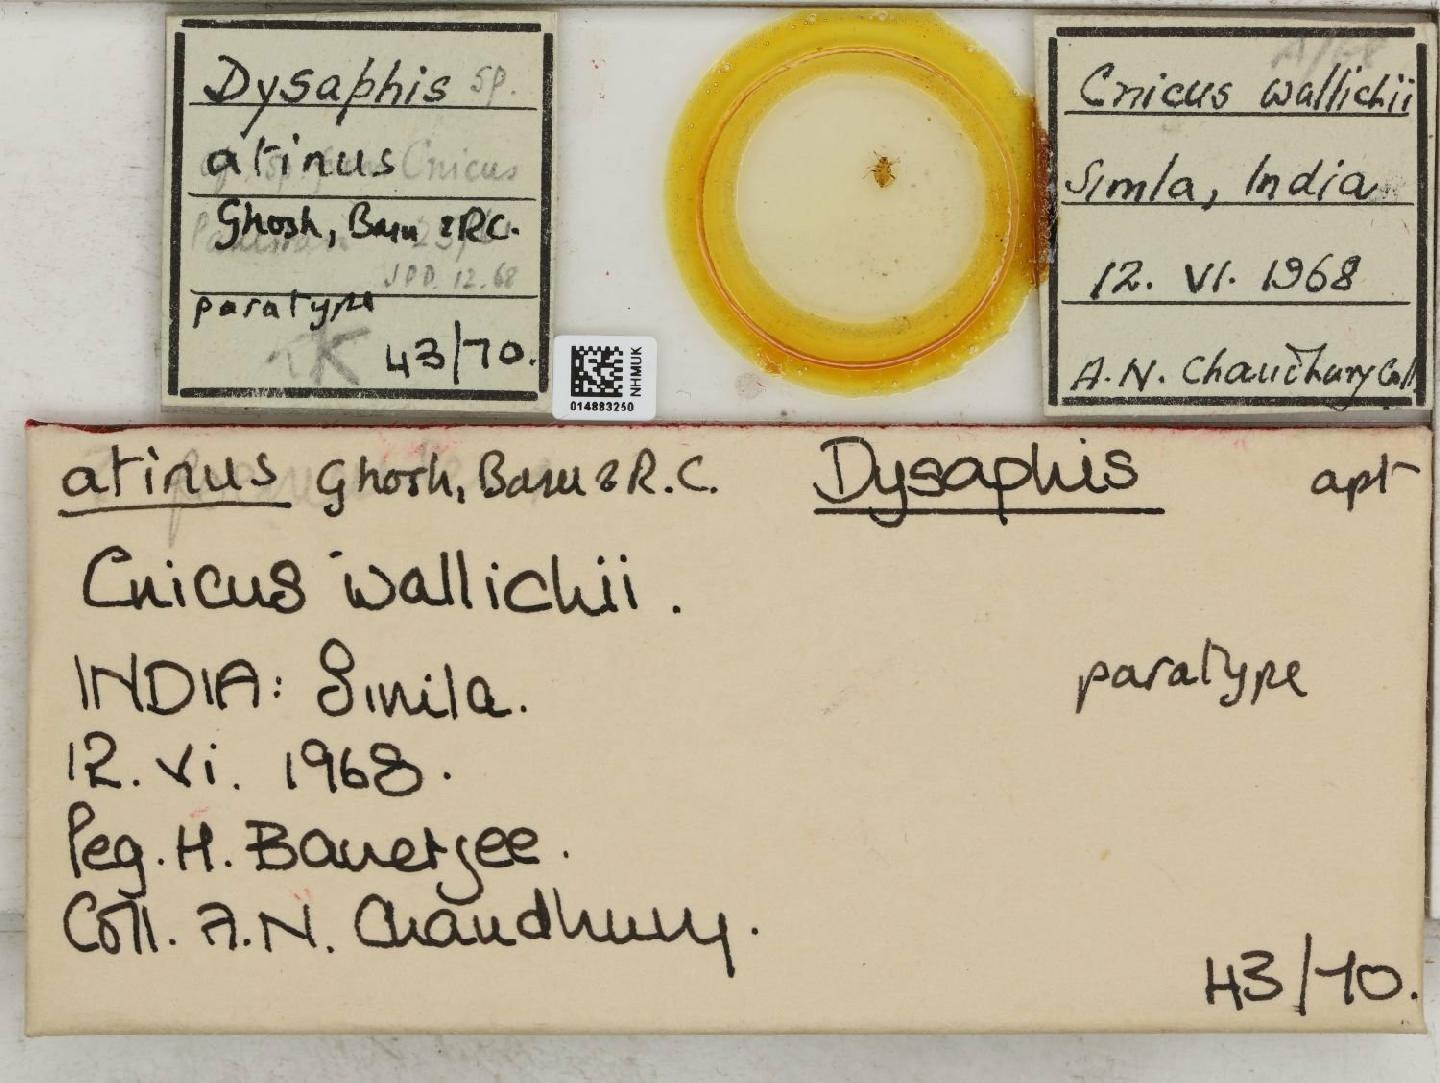 Dysaphis sp.
atinus Cnicus
Ghosh, Basu & R.C.
JPD. 12.68
paratype
K 43/70.
NHMUK
014883250
Cnicus wallichii
Simla, India
12. VI. 1968
A.N. Chaudhury Coll.
atinus Ghosh, Basu & R.C. Dysaphis apt
Cnicus wallichii.
paratype
INDIA: Simla.
12. vi. 1968.
Peg. H. Banerjee.
Coll. A.N. Chaudhury.
43/70.